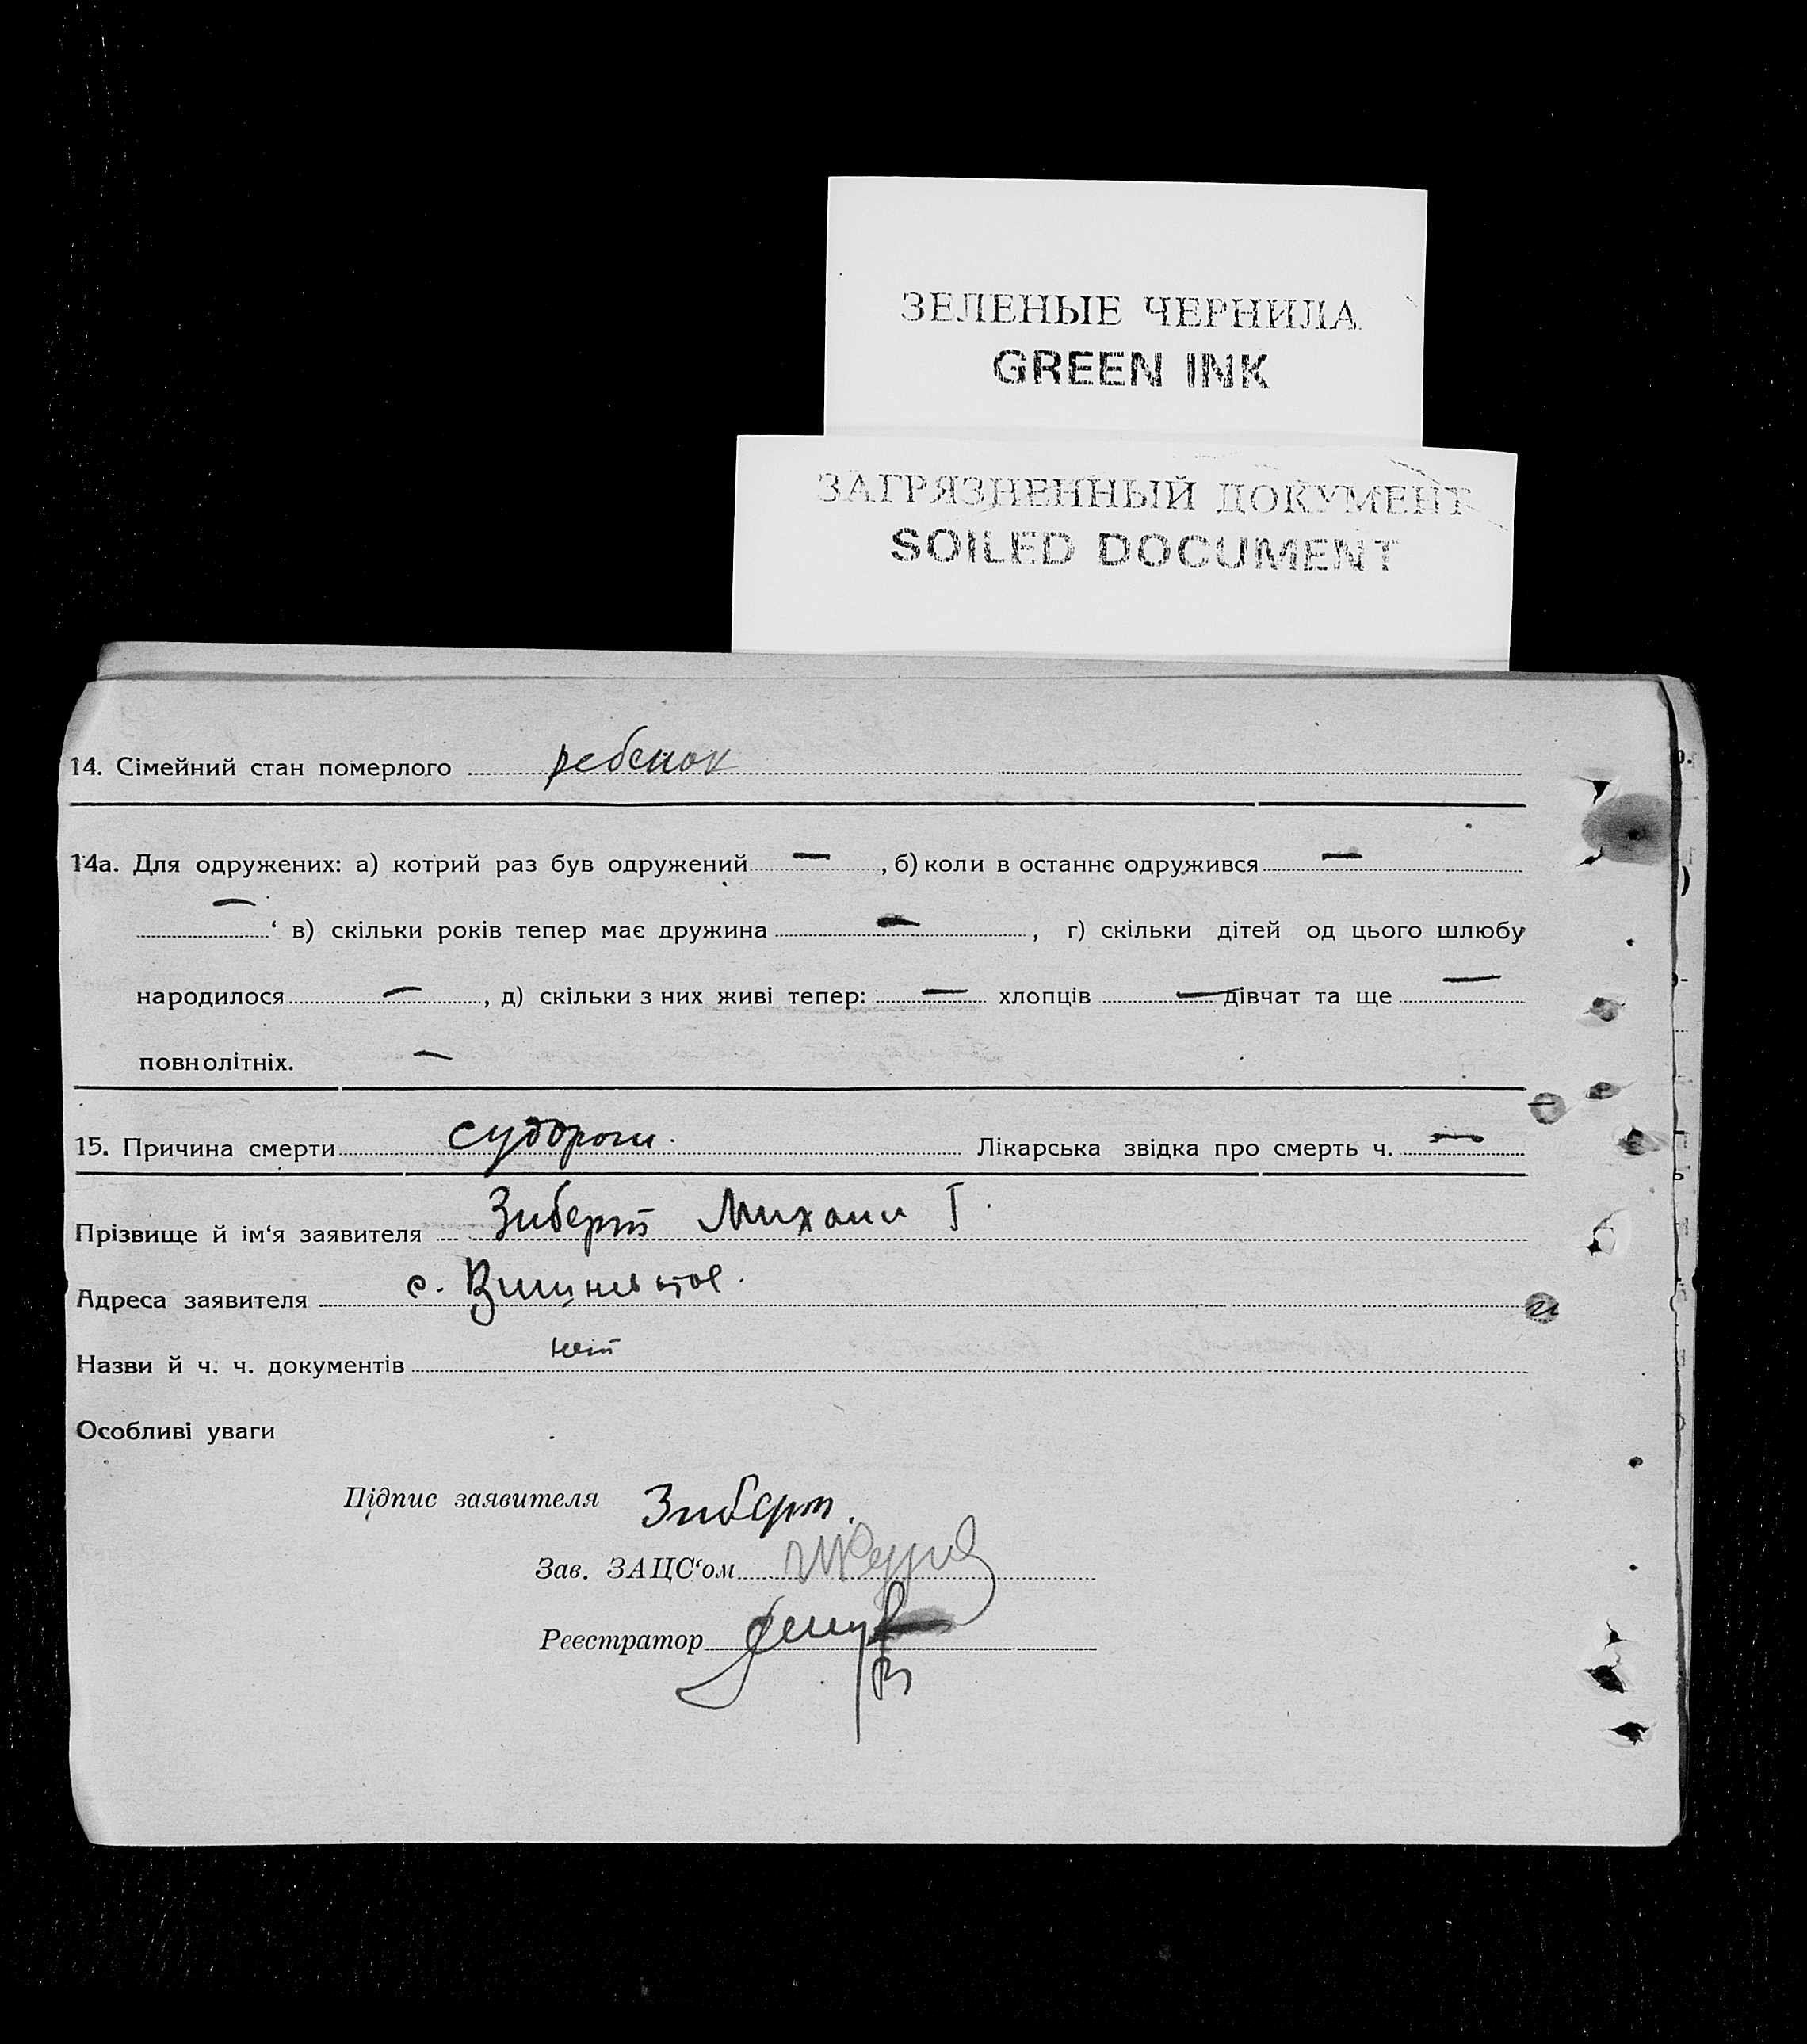 ЗЕЛЕНЫЕ ЧЕРНИЛА
GREEN INK
ЗАГРЯЗНЕННЫЙ ДОКУМЕНТ
SOILED DOCUMENT
14. Сімейний стан померлого ребенок
14а. Для одружених: а) котрий раз був одружений —, б) коли в останнє одружився —
— ‘ в) скільки років тепер має дружина —, г) скільки дітей од цього шлюбу
народилося —, д) скільки з них живі тепер: — хлопців — дівчат та ще —
повнолітніх. —
15. Причина смерти судороги. Лікарська звідка про смерть ч. —
Прізвище й ім‘я заявителя Зиберт Михаил Г.
Адреса заявителя с.
Назви й ч. ч. документів нет
Особливі уваги
Підпис заявителя Зиберт.
Зав. ЗАЦС‘ом
Реєстратор